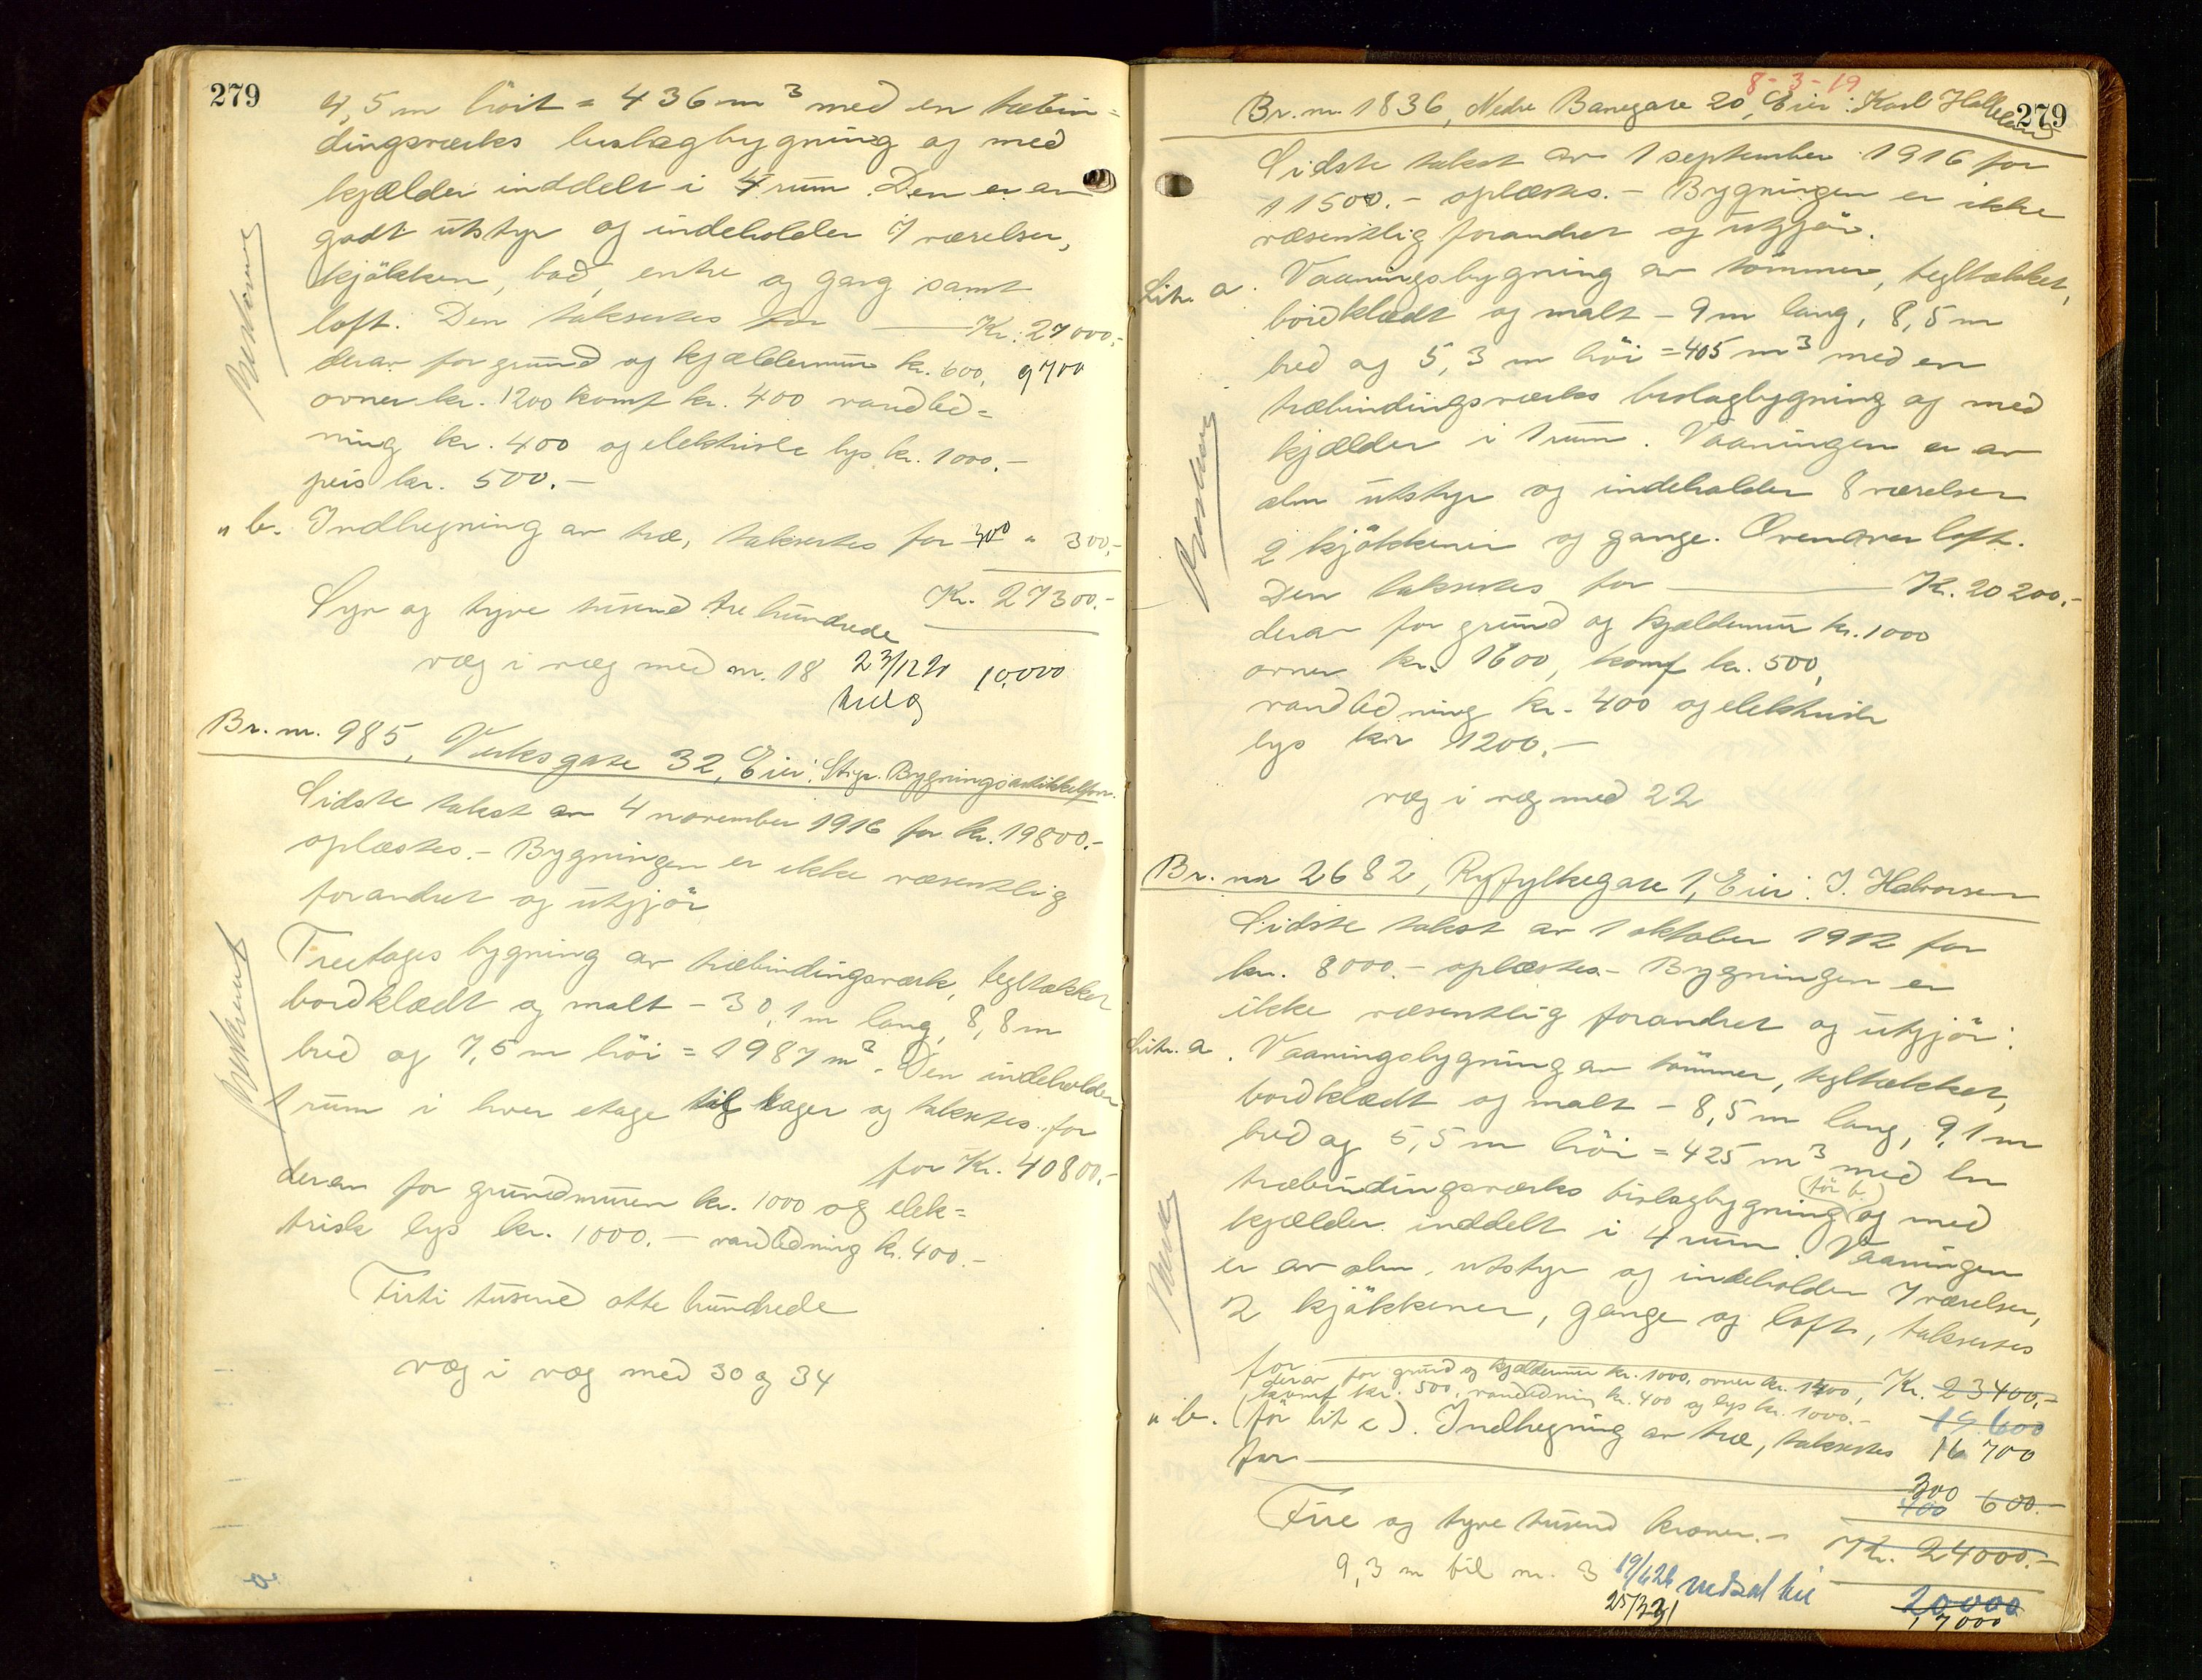 279
4,5 m höit = 436 m³ med en træbin=
dingsverks bislagbygning og med
kjælder inddelt i 4 rum. Den er av
godt utstyr og indeholder 7 værelser,
kjökken, bad, entre og gang samt
loft. Den takseres for Kr. 27000.-
derav for grund og kjældermur kr. 600, 9700
ovner kr. 1200 komf kr. 400 vandled=
ning kr. 400 og elektriske lys kr. 1000.-
peis kr. 500.-
" b. Indhegning av træ, takseres for 300 " 300.-
Kr. 27300.-
Syv og tyve tusend tre hundrede
væg i væg med nr. 18 23/12 21 10,000
Br. nr. 985, Verksgate 32, Eier: Stvgr. Bygningsartikkelforr.
Sidste takst av 4 november 1916 for kr. 19800.-
oplæstes.- Bygningen er ikke væsentlig
forandret og utgjör
Treetages bygning av træbindingsverk, tegltækket
bordklædt og malt - 30,1 m lang, 8,8 m
bred og 7,5 m höi = 1987 m³. Den indeholder
1 rum i hver etage til lager og takseres for
for Kr. 40800.-
derav for grundmuren kr. 1000 og elek=
trisk lys kr. 1000.- vandledning kr. 400.-
Firti tusend otte hundrede
væg i væg med 30 og 34
279
8-3-19
Br. nr. 1836, Nedre Banegate 20, Eier: Karl Halleland
Sidste takst av 1 september 1916 for
11500.- oplæstes.- Bygningen er ikke
væsentlig forandret og utgjör.
Litr. a. Vaaningsbygning av tömmer, tegltækket,
bordklædt og malt - 9 m lang, 8,5 m
bred og 5,3 m höi = 405 m³ med en
træbindingsverks bislagbygning og med
kjælder i 1 rum. Vaaningen er av
alm utstyr og indeholder 8 værelser
2 kjökkener og gange. Ovenover loft.
Den takseres for Kr. 20200.-
derav for grund og kjældermur kr. 1000
ovner kr. 1600, komf kr. 500,
vandledning kr. 400 og elektriske
lys kr 1200.-
væg i væg med 22
Br. nr 2682, Ryfylkegate 1, Eier: I. Halvorsen
Sidste takst av 1 oktober 1912 for
kr. 8000.- oplæstes.- Bygningen er
ikke væsentlig forandret og utgjör:
Litr. a. Vaaningsbygning av tömmer, tegltækket,
bordklædt og malt - 8,5 m lang, 9,1 m
bred og 5,5 m höi = 425 m³ med en
træbindingsverks bislagbygning (för b.) og med
kjælder inddelt i 4 rum. Vaaningen
er av alm. utstyr og indeholder 7 værelser,
2 kjökkener, gange og loft, takseres
for Kr. 23400.-
derav for grund og kjældermur kr. 1000, ovner kr. 1400,
komf kr. 500, vandledning kr. 400 og lys kr. 1000.-
19.600
" b. (för lit c). Indhegning av træ, takseres 16 700
for 300 400 600.-
Fire og tyve tusend kroner.- Kr. 24000.-
9,3 m til nr. 3 19/4 26 nedsat til 20000
25/3 31 17000